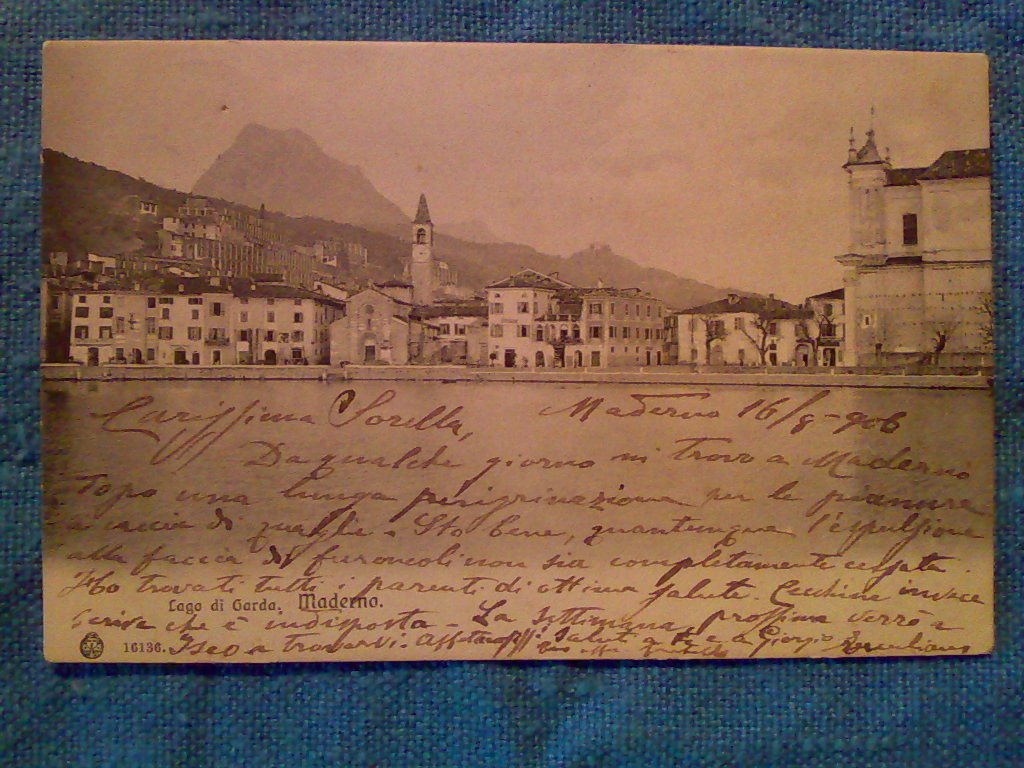 Carissima Sorella, Maderno 16/8-906
Da qualche giorno mi trovo a Maderno
dopo una lunga perigrinazione per le pianure
a caccia di quaglie - Sto bene, quantunque l'espulsione
alla faccia di furoncoli non sia completamente cessata.
Ho trovati tutti i parenti di ottima salute. Cecchina invece
Lago di Garda. Maderno.
scrive che è indisposta - La settimana prossima verrò a
16136. Iseo a trovarvi. Affettuosissi saluti a te e a Giorgio